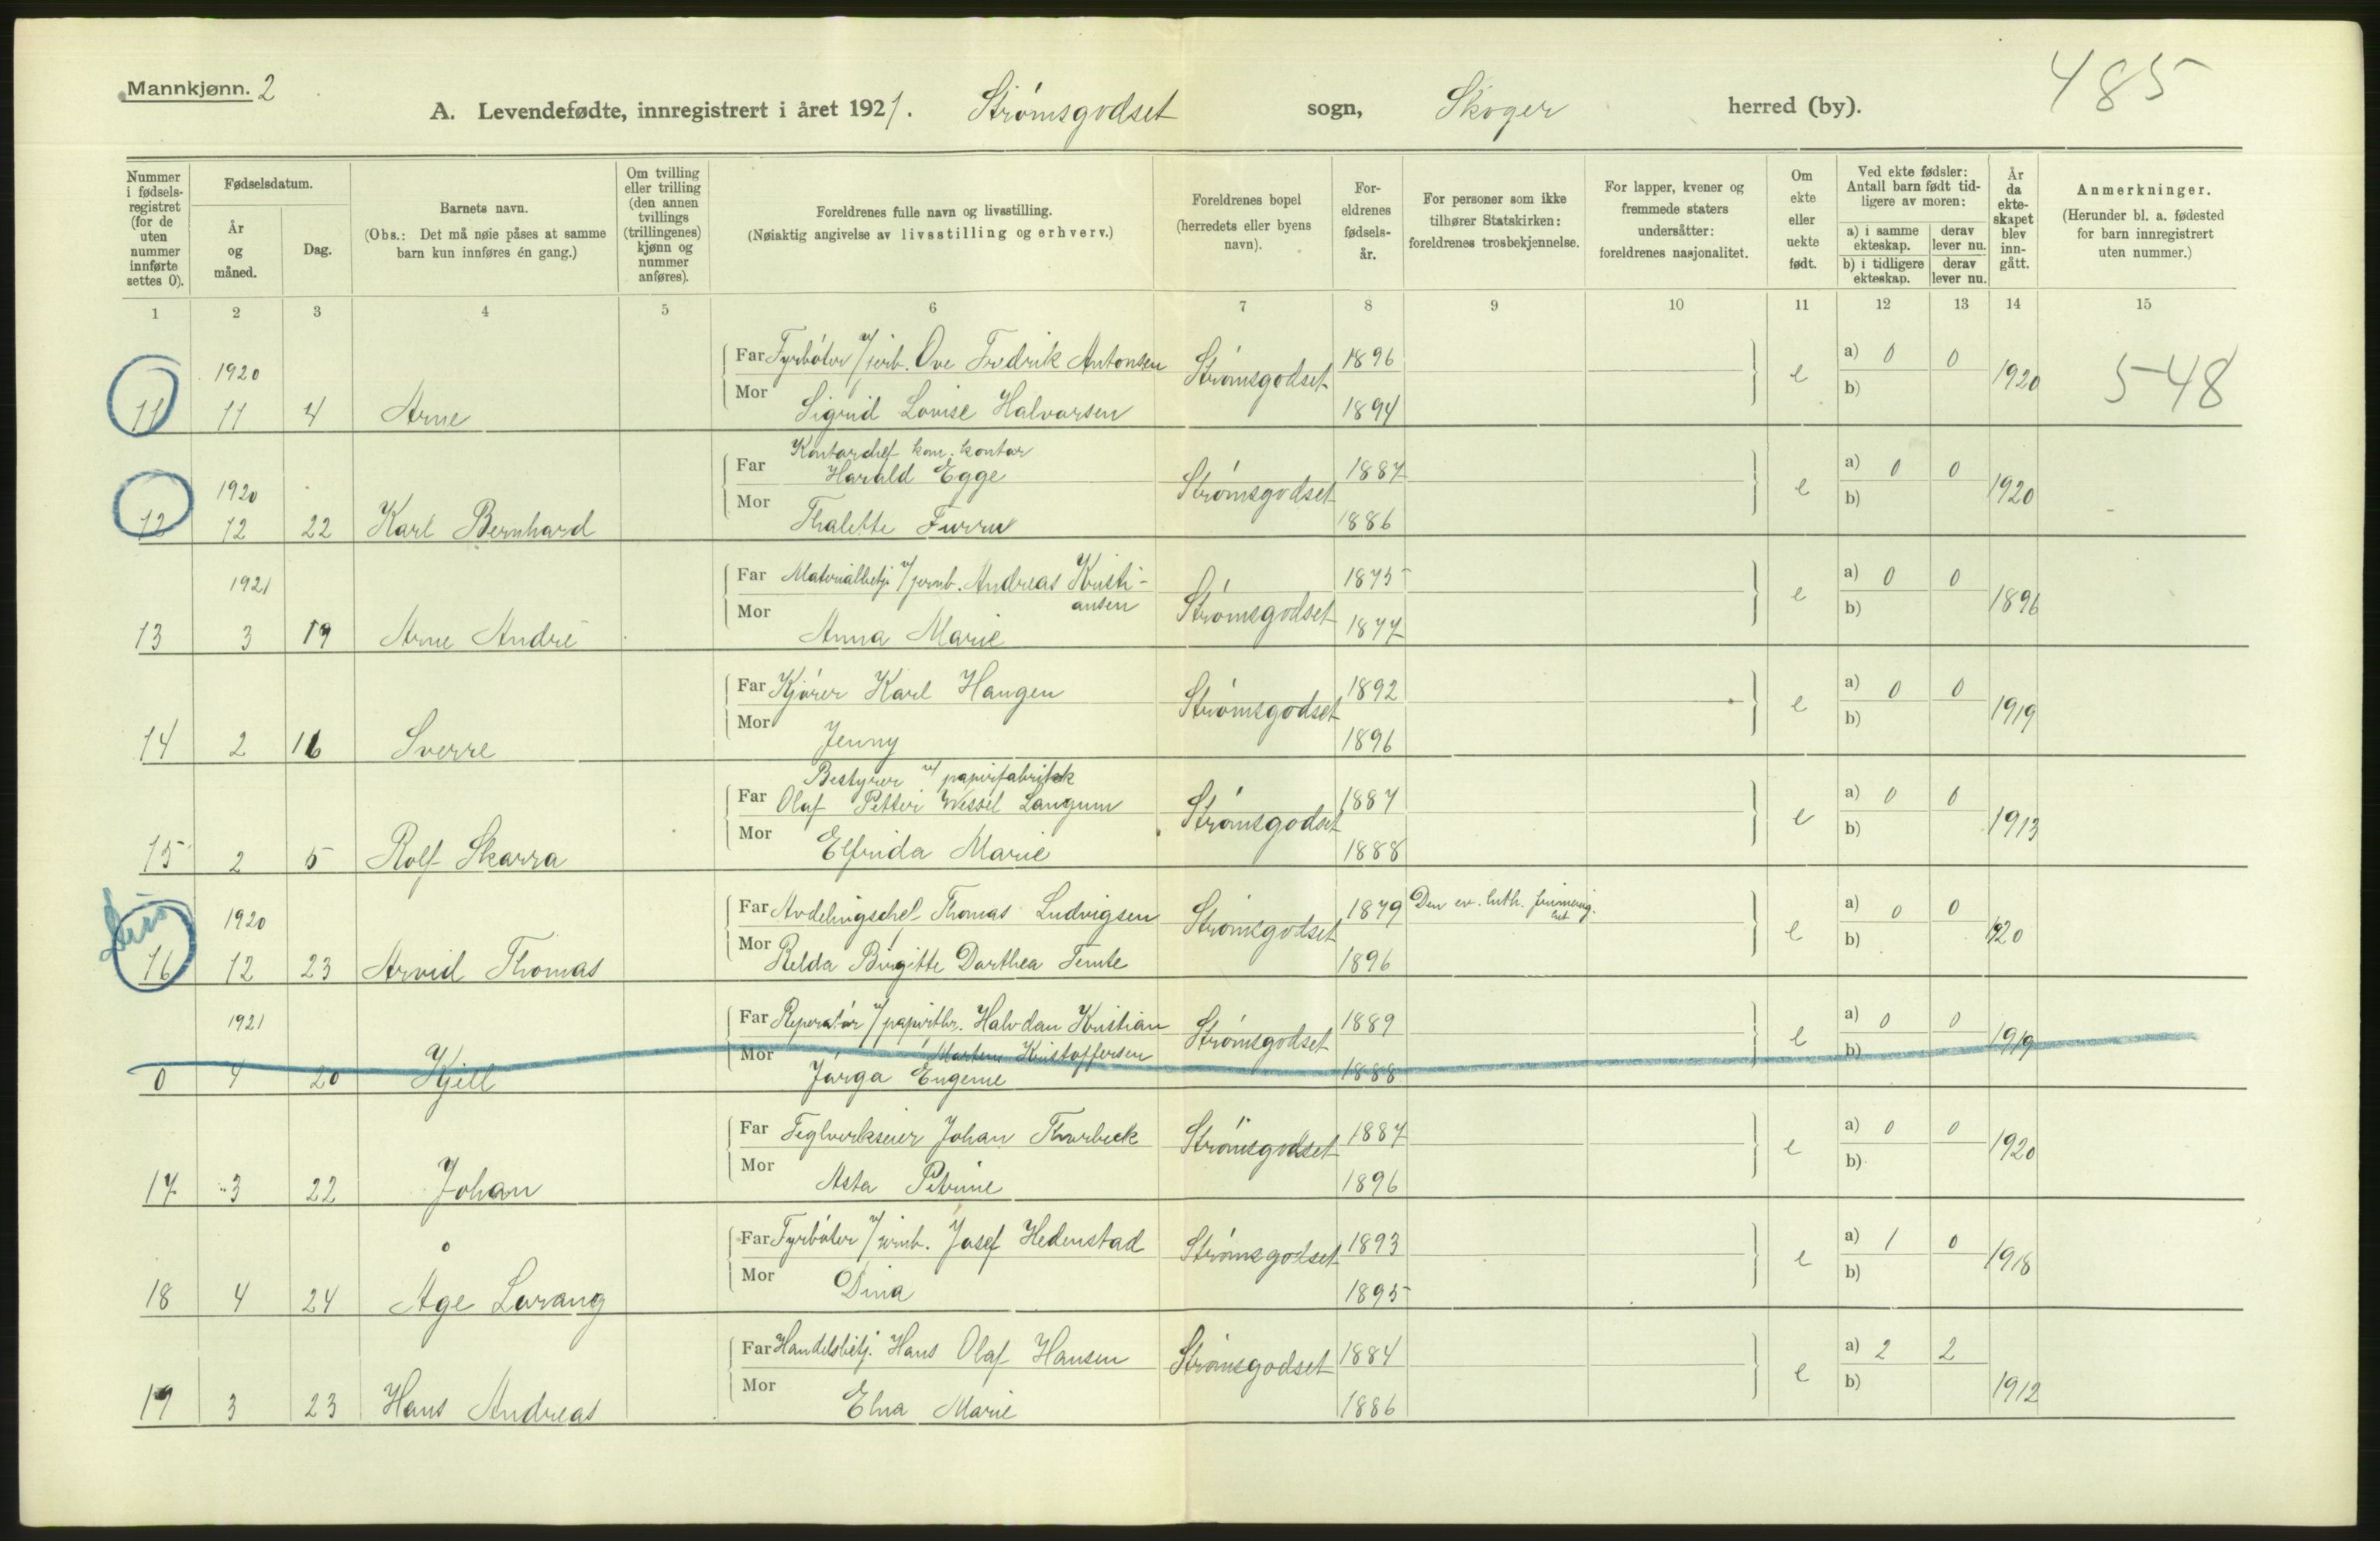 Mannkjønn. 2
485
A. Levendefødte, innregistrert i året 1921. Strømsgodset sogn, Skoger herred (by).
Nummer i fødselsregistret (for de uten nummer innførte settes 0).
Fødselsdatum.
År og måned.
Dag.
Barnets navn.
(Obs.: Det må nøie påses at samme barn kun innføres én gang.)
Om tvilling eller trilling (den annen tvillings (trillingenes) kjønn og nummer anføres).
Foreldrenes fulle navn og livsstilling.
(Nøiaktig angivelse av livsstilling og erhverv.)
Foreldrenes bopel (herredets eller byens navn).
Foreldrenes fødselsår.
For personer som ikke tilhører Statskirken: foreldrenes trosbekjennelse.
For lapper, kvener og fremmede staters undersåtter: foreldrenes nasjonalitet.
Om ekte eller uekte født.
Ved ekte fødsler: Antall barn født tidligere av moren:
a) i samme ekteskap.
derav lever nu.
b) i tidligere ekteskap.
derav lever nu.
År da ekteskapet blev inngått.
Anmerkninger.
(Herunder bl. a. fødested for barn innregistrert uten nummer.)
1 2 3 4 5 6 7 8 9 10 11 12 13 14 15
1920 Far Fyrbøter v/jernb. Ove Fredrik Antonsen Strømsgodset 1896 e a) 0 0 1920 548
11 11 4 Arne Mor Sigrid Lovise Halvorsen 1894 b)
Kontorchef kom. kontor
1920 Far Harald Egge Strømsgodset 1887 e a) 0 0 1920
12 12 22 Karl Bernhard Mor Thalette Furru 1886 b)
1921 Far Materialbetj. v/jernb. Andreas Kristi- Strømsgodset 1875 e a) 0 0 1896
ansen
13 3 19 Arne André Mor Anna Marie 1877 b)
Far Kjører Karl Haugen Strømsgodset 1892 e a) 0 0 1919
14 2 16 Sverre Mor Jenny 1896 b)
Bestyrer v/ papirfabrikk
Far Olaf Petter Wessel Langum Strømsgodset 1887 e a) 0 0 1913
15 2 5 Rolf Skarra Mor Elfrida Marie 1888 b)
1920 Far Avdelingschef Thomas Ludvigsen Strømsgodset 1879 Den ev. luth. frimenig. e a) 0 0 1920
16 12 23 Arvid Thomas Mor Relda Birgitte Dorthea Temte 1896 b)
1921 Far Reparatør v/papirfbr. Halvdan Kristian Strømsgodset 1889 e a) 0 0 1919
Martens Kristoffersen
0 4 20 Kjell Mor Jørga Eugenie 1888 b)
Far Teglverkseier Johan Thorbeck Strømsgodset 1887 e a) 0 0 1920
17 3 22 Johan Mor Asta Petrine 1896 b)
Far Fyrbøter v/jernb. Josef Hedenstad Strømsgodset 1893 e a) 1 0 1918
18 4 24 Åge Lorang Mor Dina 1895 b)
Far Handelsbetj. Hans Olaf Hansen Strømsgodset 1884 e a) 2 2 1912
19 3 23 Hans Andreas Mor Elna Marie 1886 b)